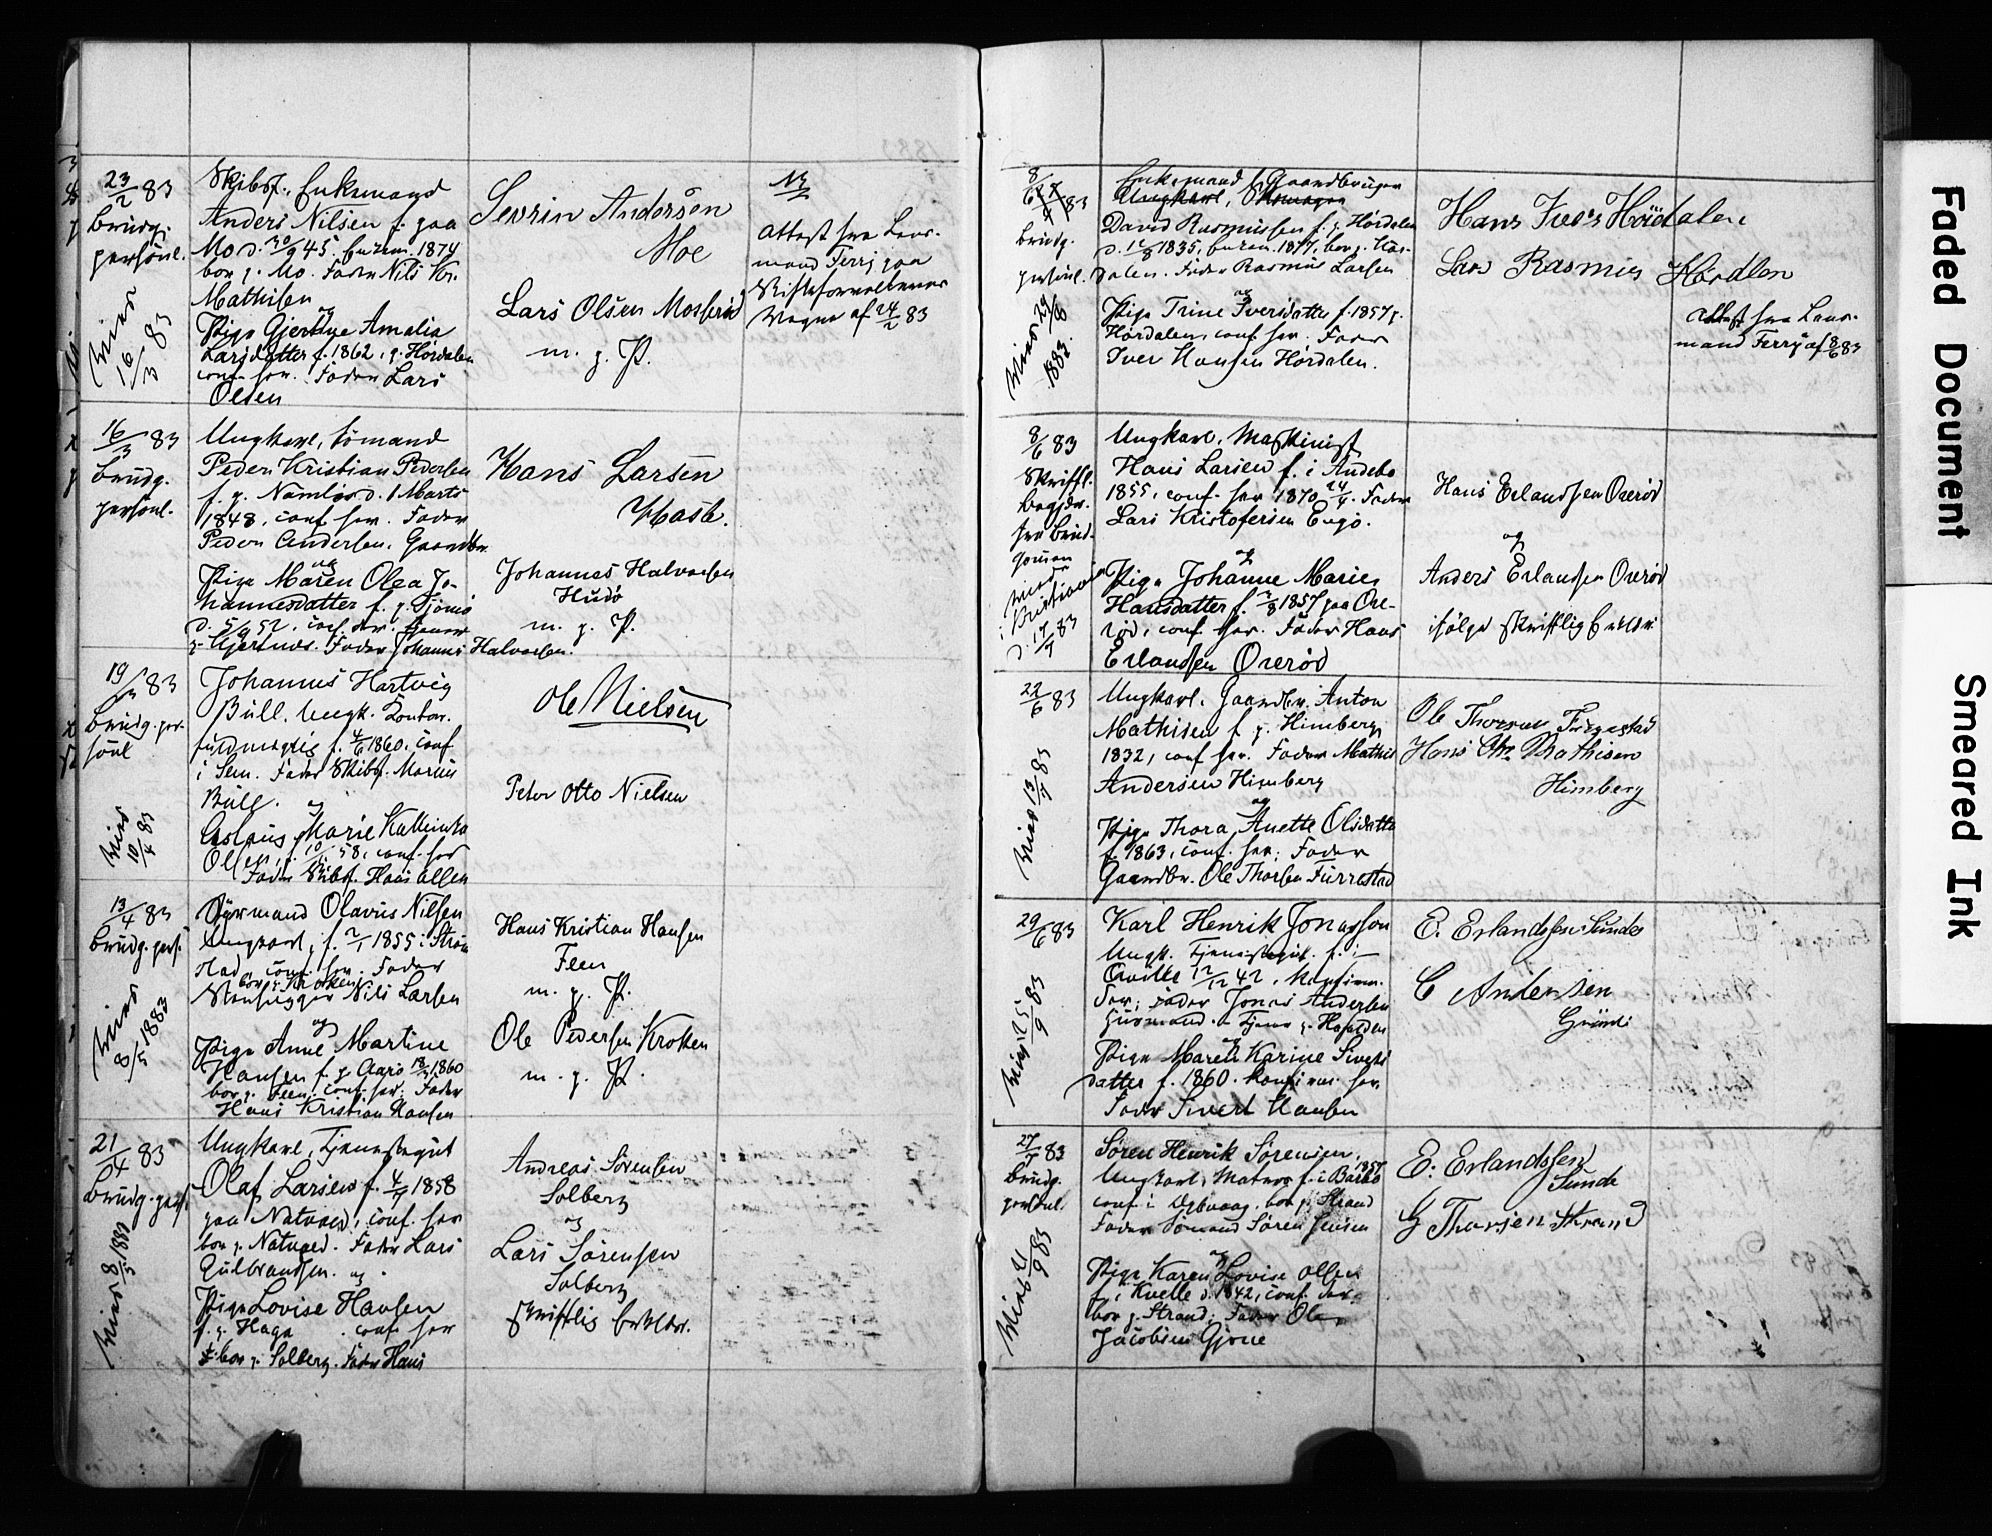 23/2 83
Brudg.
personl.
Viet
16/3 83
Skibsf., Enkemand
Anders Nilsen f. paa
Mo d. 30/9 45. Enkem. 1874
bor p. Mo. Fader Nils Kr.
Mathisen
og
Pige Gjertine Amalia
Larsdatter f. 1862, p. Hørdalen
conf. her. Fader Lars
Olsen
Sevrin Andersen
Moe
Lars Olsen Mosserød
m. p. P.
Attest fra Lens-
mand Ferrj paa
Skifteforvalterens
Vegne af 24/2 83
16/3 83
Brudg.
personl.
Ungkarl, Sømand
Peder Kristian Pedersen
f. p. Namløs d. 1 Marts
1848, conf. her. Fader
Peder Andersen, Gaardbr.
og
Pige Maren Olea Jo-
hannesdatter f. p.
d. 5/9 52, conf. her.
Fader Johannes Halvorsen.
Hans Larsen
Haslr.
Johannes Halvorsen
Hudø
m. p. P.
19/3 83
Brudg. per-
sonl
Viet
10/4 83
Johannes Hartvig
Bull. Ungk. Kontor-
fuldmægtig f. 4/6 1860, conf
i Sem. Fader Skibsf. Marius
Bull.
og
Aslaug Marie Kathinka
Olsen, f. 10/ 58, conf. her
Fader Skibsf. Hans Olsen
Ole Nielsen
Peter Otto Nielsen
13/4 83
Brudg. pers.
Viet
8/5 1883
Styrmand Olavus Nilsen
Ungkarl, f. 2/1 1855 i Strøm
stad, conf. her. Fader
bor p. Kroken
Stenhugger Nils Larsen
og
Pige Anne Martine
Hansen f. p. Aarø 1860
bor p. Feen, conf. her. Fader
Hans Kristian Hansen
Hans Kristian Hansen
Feen
m. p. P.
Ole Pedersen Kroken
m. p. P.
21/4 83
Brudg. pers.
Viet 8/5 1883
Ungkarl, Tjenestegut
Olaf Larsen f. 4/9 1858
paa Natvaed, conf. her
bor p. Natvaed. Fader Lars
Gulbrandsen. og
Pige Lovise Hansen
f. p. Haga. conf. her
bor p. Solberg. Fader Hans
Andreas Sørensen
Solberg
og
Lars Sørensen
Solberg
skriftlig Erklær.
8/6 83
Brudg.
personl.
Viet 29/8
1883.
Enkemand, Gaardbruger
Ungkarl,
David Rasmussen f. p. Hørdalen
d. 12/8 1835, Enkem. 1877, bor p. Hør-
dalen. Fader Rasmus Larsen
og
Pige Trine Iversdatter f. 1857 p.
Hørdalen, conf. her. Fader
Iver Hansen Hørdalen.
Hans Ivers Hördalen
Lars Rasmus Hørdlen
Attest fra Lens-
mand Ferrj af 8/6 83
8/6 83
Skriftl.
Begjær.
fra Brud-
gommen
Viede
i Kristiania
d. 17/7 83
Ungkarl, Maskinist
Hans Larsen f. i Andebo
1855, conf. her 1870 24/4. Fader
Lars Kristofersen Engø.
og
Pige Johanne Marie
Hansdatter f. 2/8 1857 paa Ore-
rød, conf. her. Fader Hans
Erlandsen Orerød
Hans Erlandsen Orerød
og
Anders Erlansen Orerød
ifølge skriftlig Erklær
22/6 83
Viet 13/7 83
Ungkarl. Gaardbr. Anton
Mathisen f. p. Himberg
1832, conf. her. Fader Mathis
Andersen Himberg
og
Pige Thora Anette Olsdatter
f. 1863, conf. her; Fader
Gaardbr. Ole Thorsen Furrestad
Ole Thorsen
Hans Chr. Mathisen
Himberg
29/6 83
Viet 25/9 83
Karl Henrik Jonasson
Ungk. Tjenestegut. f. i
12/12 42, konfirm.
Fader Jonas Andersen
Husmand.
og
Pige Maren Karine Siverts
datter f. 1860. konfirm. her
Fader Sivert Hansen
E. Erlandssen Sunde
C Andersen
27/7 83
Brudg.
personl.
Viet 21/9 83
Søren Henrik Sørensen,
Ungkarl, Matros f. i Barbo 1857
conf. i bor p. Strand
Fader Sømand Søren Jensen
og
Pige Karen Lovise Olsen
f. i Kvelle d. 1842, conf. der
bor p. Strand; Fader Ole
Jacobsen Gjone
E. Erlandssen
Sunde
G Thorsen Strand
Faded Document
Smeared Ink